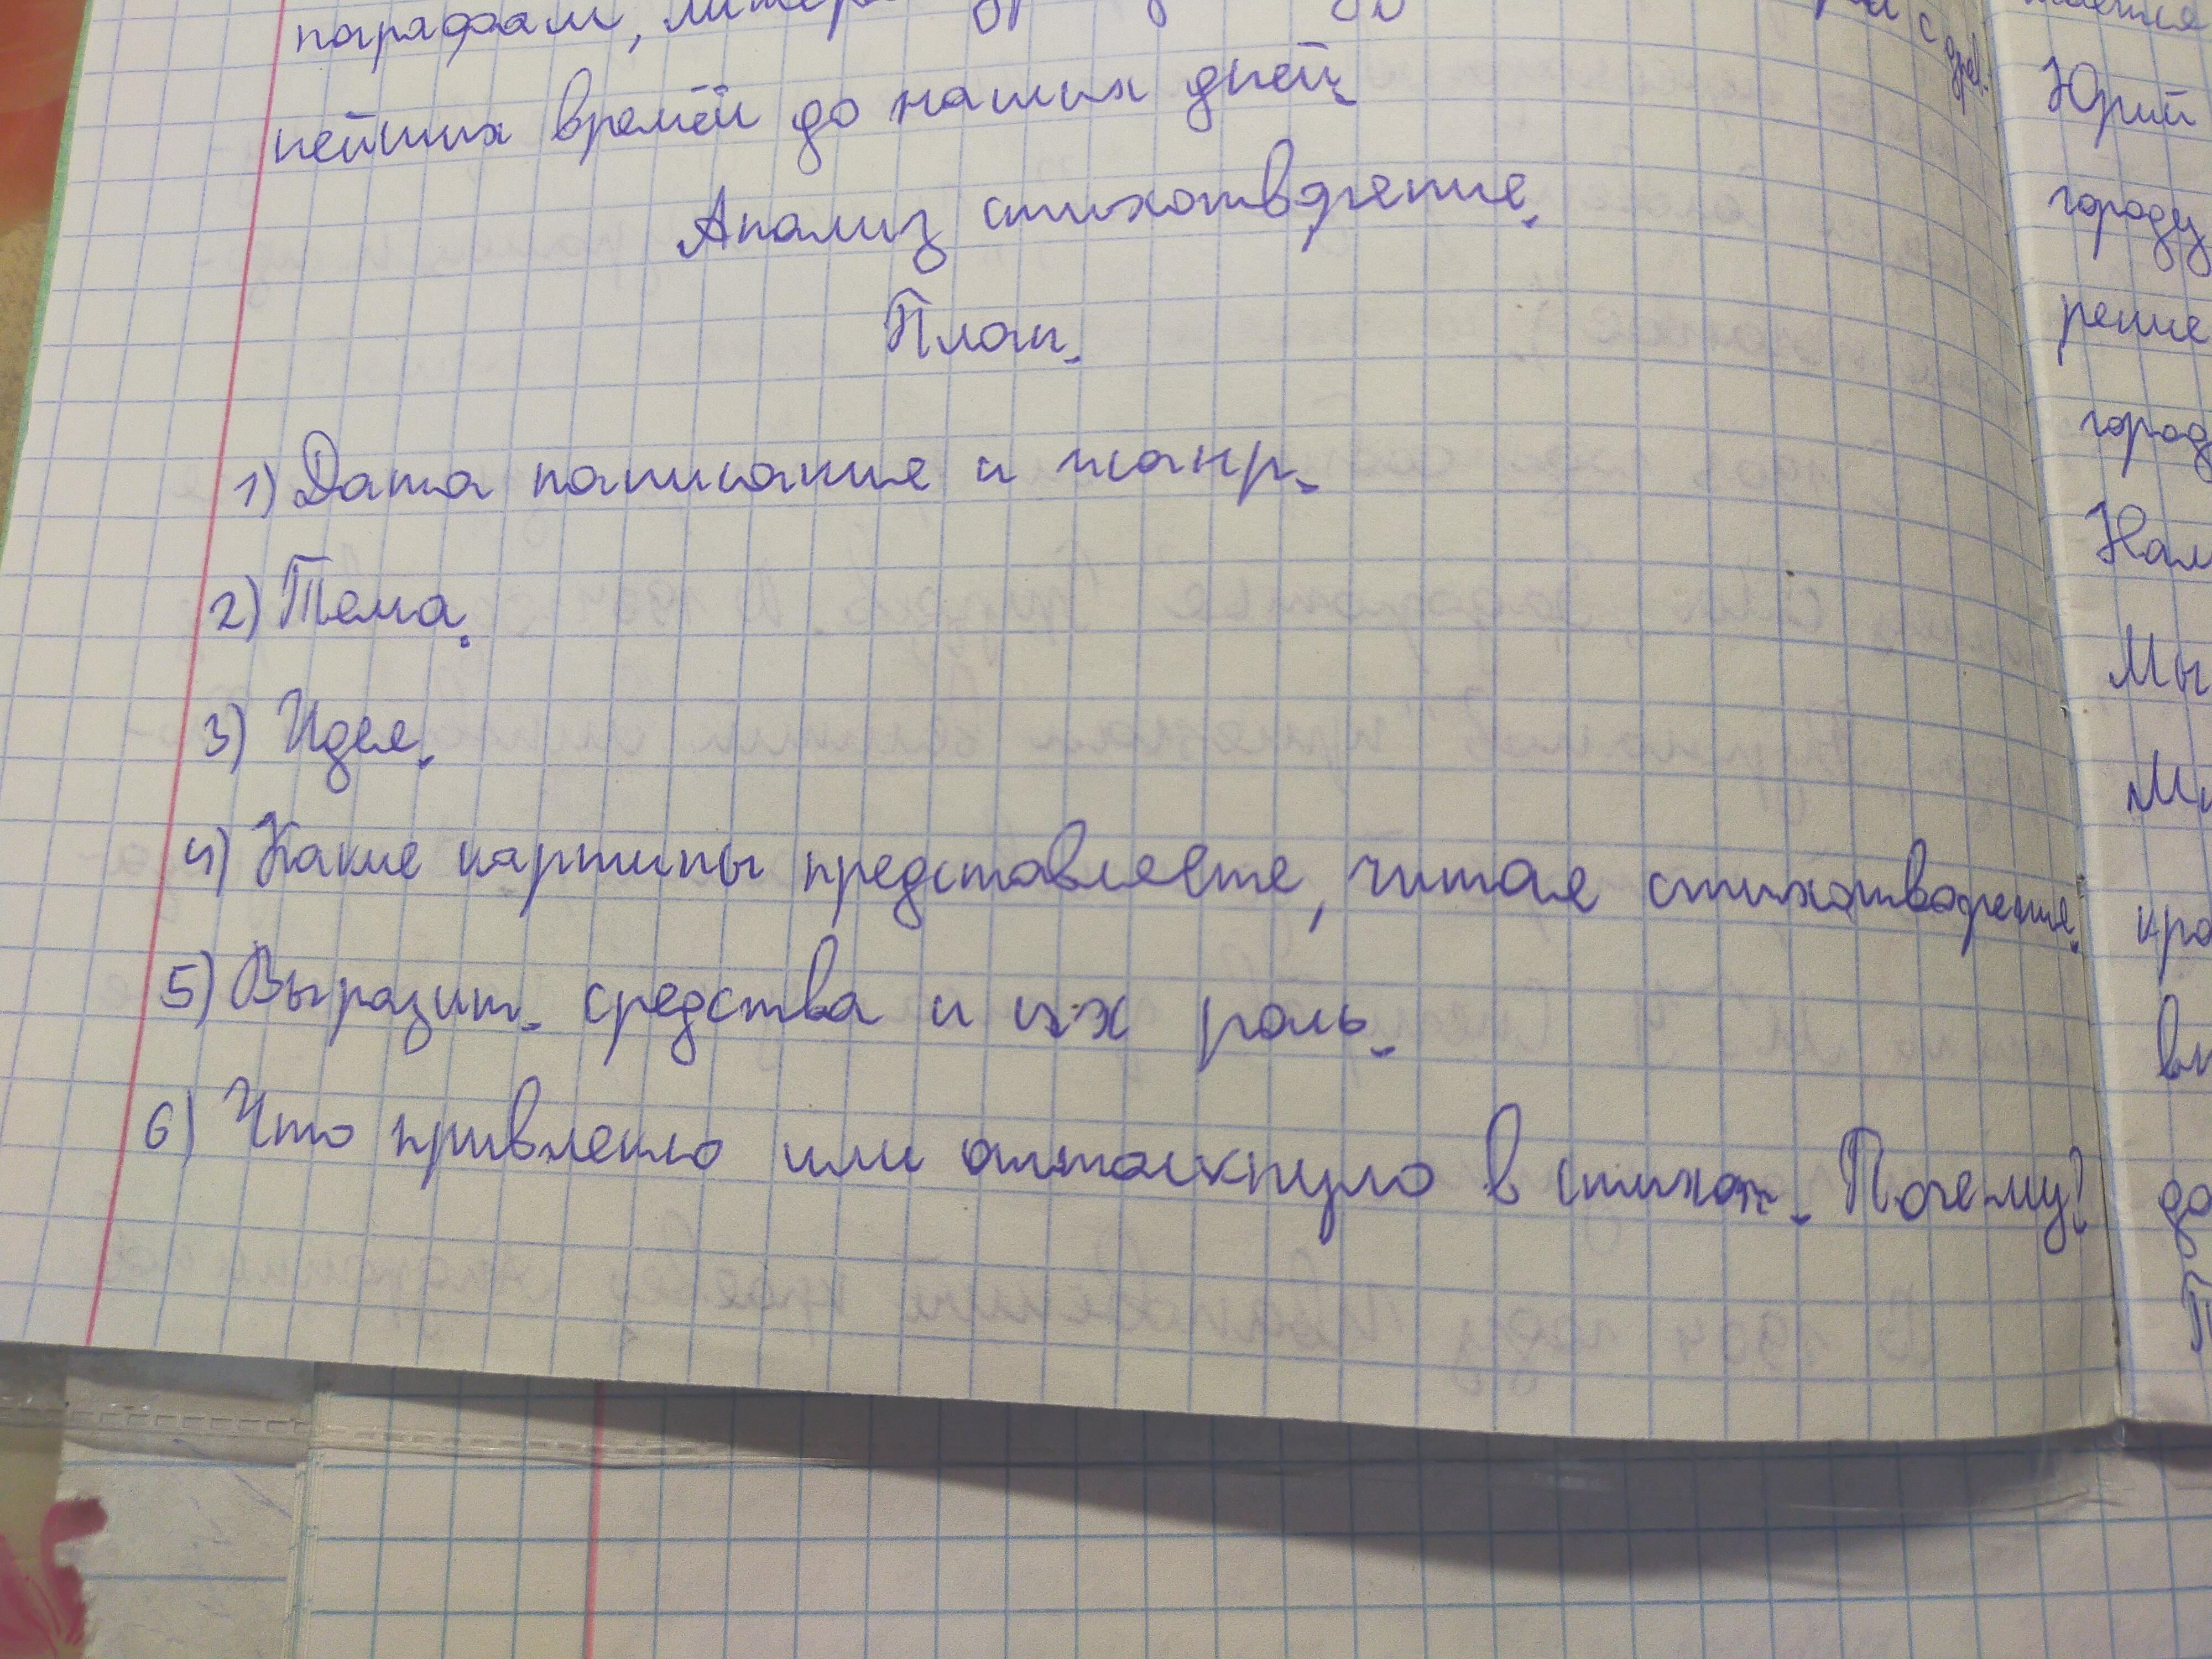 параграфам,
нейших времён до наших дней.
Анализ стихотворение.
План.
1) Дата написание и жанр.
2) Тема.
3) Идея.
4) Какие картины представляете, читая стихотворение.
5) Выразит. средства и их роль.
6) Что привлекло или оттолкнуло в стихот. Почему?
Юрий
городу
рение
город
Нам
Мы
кра
до